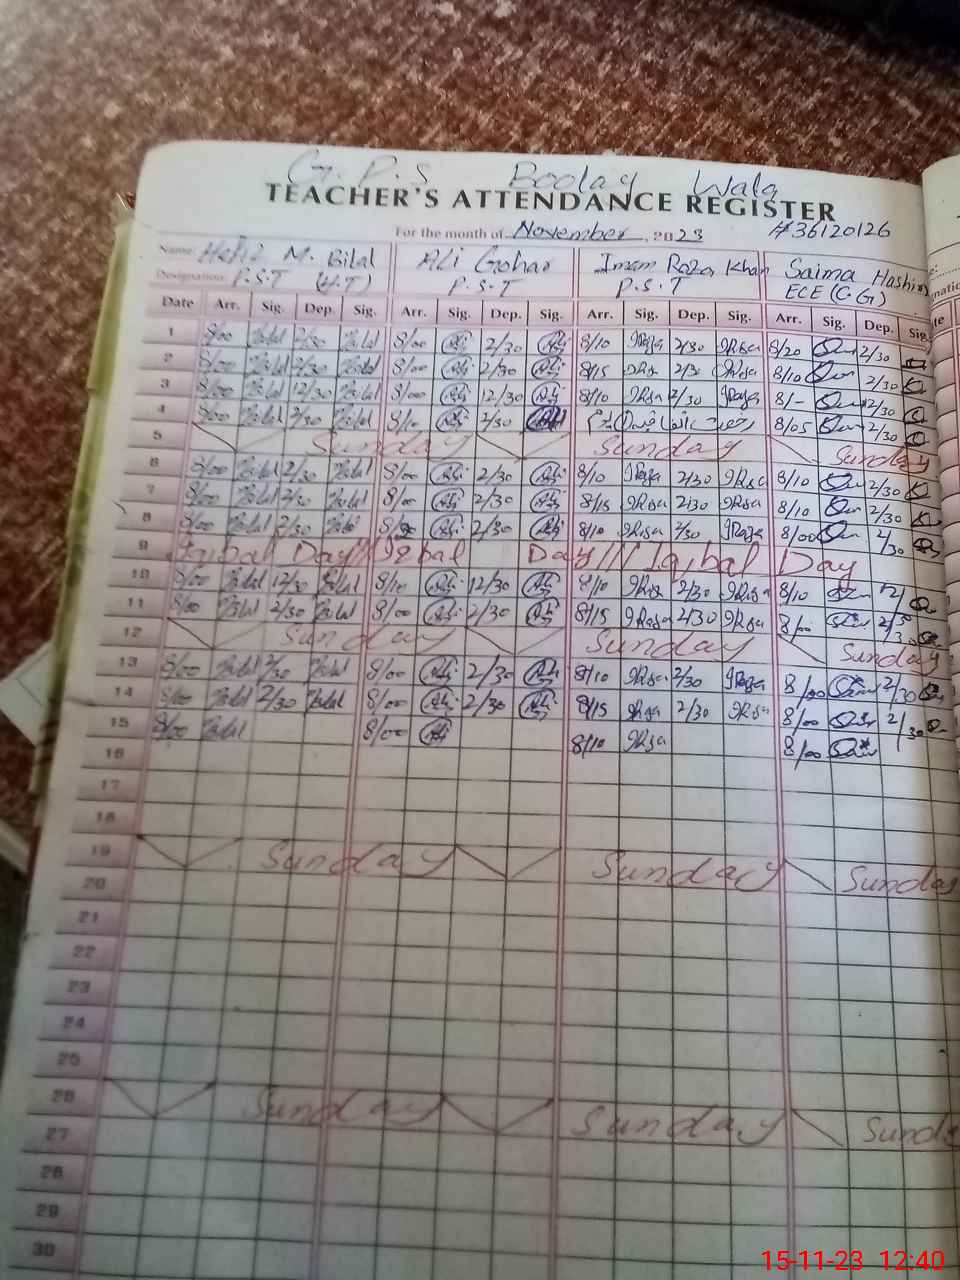 G.P.S Boolay Wala
TEACHER'S ATTENDANCE REGISTER
For the month of November, 2023 #36120126
Name: Hafiz M. Bilal Ali Gohar Imam Raza Khan Saima Hashim
Designation: P.S.T (H.T) P.S.T P.S.T ECE (C.G)
Date Arr. Sig. Dep. Sig. Arr. Sig. Dep. Sig. Arr. Sig. Dep. Sig. Arr. Sig. Dep. Sig.
1 8/00 Bilal 2/30 Bilal 8/00 Ali 2/30 Ali 8/10 IRaza 2/30 IRaza 8/20 2/30
2 8/00 Bilal 2/30 Bilal 8/00 Ali 2/30 Ali 8/15 IRaza 2/30 IRaza 8/10 2/30
3 8/00 Bilal 12/30 Bilal 8/00 Ali 12/30 Ali 8/10 IRaza 2/30 IRaza 8/- 2/30
4 8/00 Bilal 2/30 Bilal 8/10 Ali 2/30 8/05 2/30
5 Sunday Sunday Sunday
6 8/00 Bilal 2/30 Bilal 8/00 Ali 2/30 Ali 8/10 IRaza 2/30 IRaza 8/10 2/30
7 8/00 Bilal 2/30 Bilal 8/00 Ali 2/30 Ali 8/15 IRaza 2/30 IRaza 8/10 2/30
8 8/00 Bilal 2/30 Bilal Ali 2/30 Ali 8/10 IRaza 2/30 IRaza 8/00 2/30
9 Iqbal Day // Iqbal Day /// Iqbal Day
10 8/00 Bilal 12/30 Bilal 8/10 Ali 12/30 Ali 8/10 IRaza 2/30 IRaza 8/10
11 8/00 Bilal 2/30 Bilal 8/00 Ali 2/30 Ali 8/15 IRaza 2/30 IRaza 8/00
12 Sunday Sunday Sunday
13 8/00 Bilal 2/30 Bilal 8/00 Ali 2/30 Ali 8/10 IRaza 2/30 IRaza 8/00 2/30
14 8/00 Bilal 2/30 Bilal 8/00 Ali 2/30 Ali 8/15 IRaza 2/30 IRaza 8/00 2/30
15 8/00 Bilal 8/00 Ali 8/10 IRaza 8/00
16
17
18
19 Sunday Sunday Sunday
20
21
22
23
24
25
26 Sunday Sunday Sunda
27
28
29
30
15-11-23 12:40